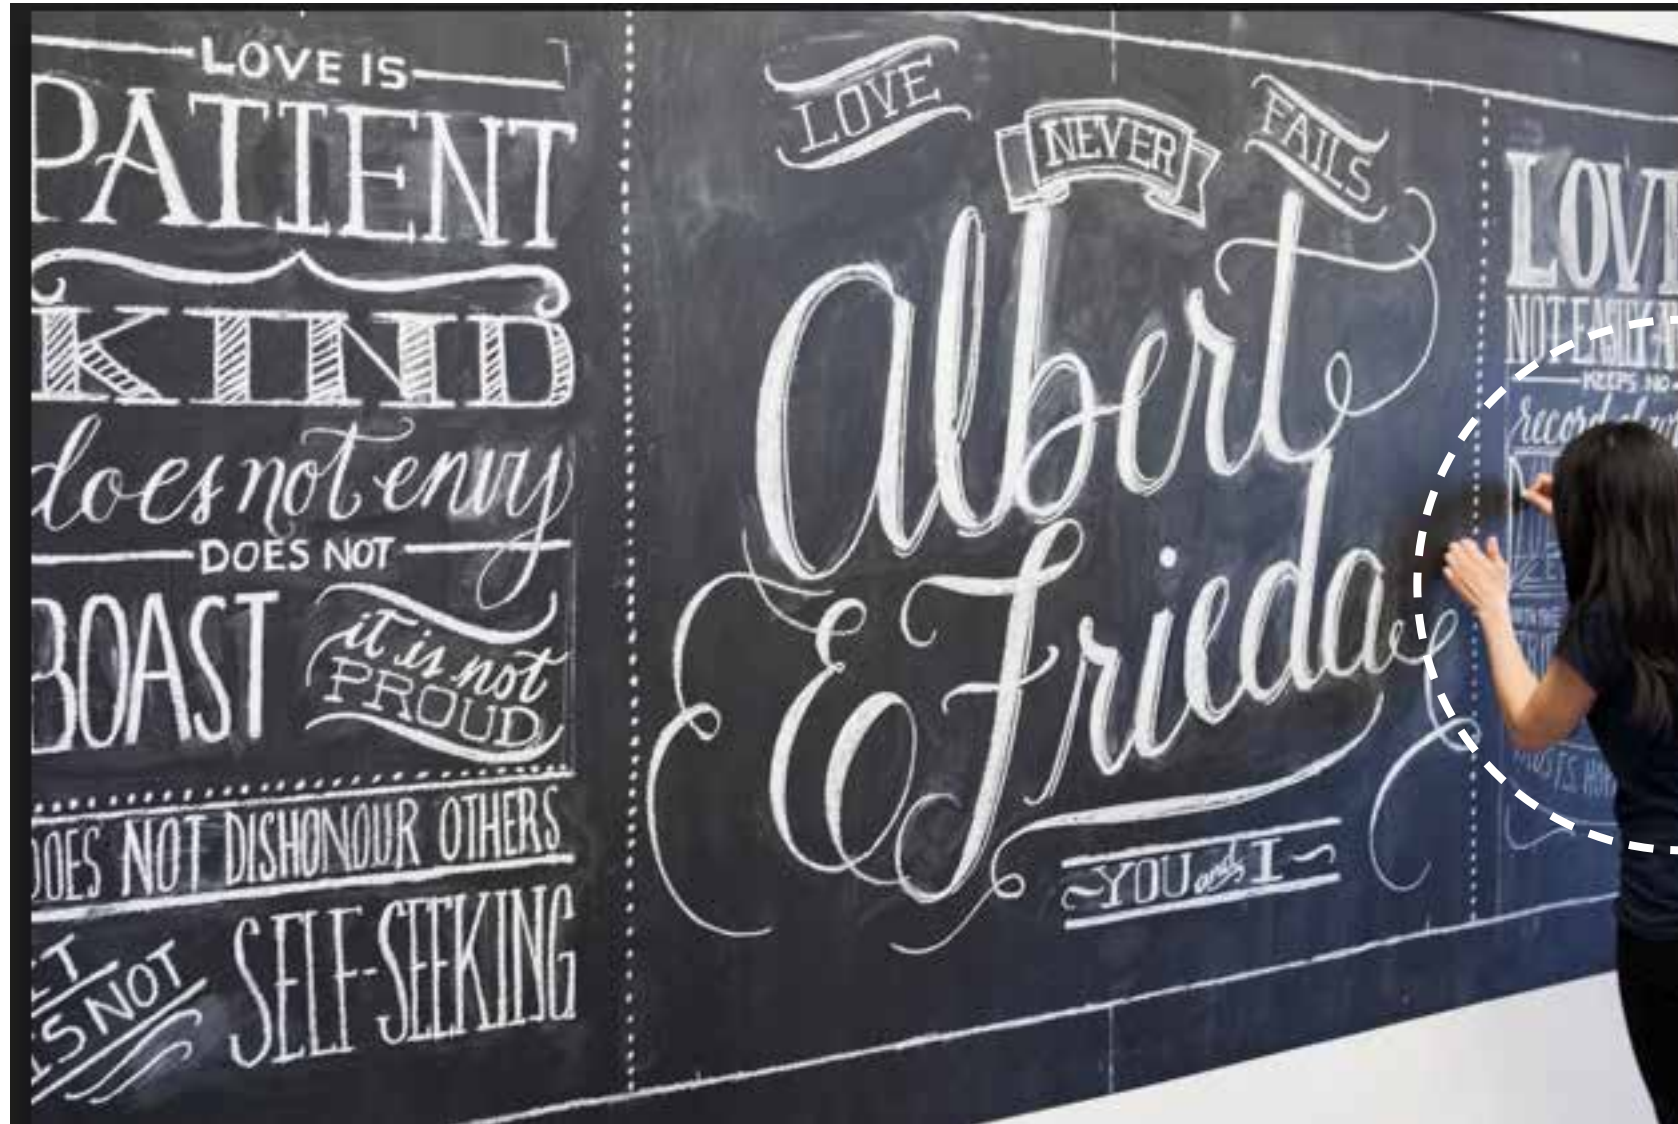 LOVE IS
PATIENT
KIND
does not envy
DOES NOT
BOAST
it is not
PROUD
DOES NOT DISHONOUR OTHERS
IT
IS NOT
SELF-SEEKING
LOVE
NEVER
FAILS
Albert
& Frieda
YOU and I
LOVE
NOT EASILY
KEEPS NO
record of